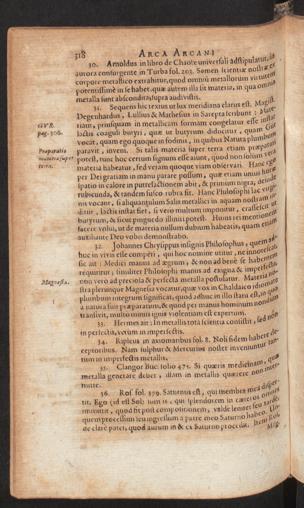 318 ARCA ARCANI
30. Arnoldus in libro de Chaose universali adstipulatur,
aurora consurgente in Turba fol. 203. Semen
corpore metallico extrahitur, quod omnium metallorum virtutem
potentissimè in se habet, quæ autem illa sit materia, in qua omnia
metalla sunt abscondita, supra audivistis.
31. Sequens hic textus ut lux meridiana clarus est. Magist.
Degenhardus, Lullius & Mathesius in Sarepta scribunt:
riam, priusquam in metallicam formam congelatur esse instar
lactis coaguli butyri, quæ ut butyrum diducitur, quam GUR
GUR.
pag. 306.
vocat, quam ego quoque in fodinis, in quibus Natura plumbum
Præparatio
materia super
terra.
paravit, inveni. Si talis materia super terra etiam præparari
potest, tunc hoc certum signum esse aiunt, quod non solum vera
materia habeatur, sed veram quoque viam observari. Hanc ego
per Dei gratiam in manu parare possum, quæ etiam unius horæ
spatio in calore in putrefactionem abit, & primum nigra, deinde
rubicunda, & tandem fusco rubra fit. Hanc Philosophi lac virgi-
nis vocant, si aliquantulum Salis metallici in aquam nostram in-
ditur, lactis instar fiet, si vero multum imponitur, crassescit ut
butyrum, & sicut pinguedo illiniri potest. Huius rei mentionem
facere volui, ut de materia nullum dubium habeatis, quam etiam
auxiliante Deo vobis demonstrabo.
32. Johannes Chrysippus insignis Philosophus, quem ad-
hoc in vivis esse comperi, qui hoc nomine utitur, ne innotescat
sic ait: Medici manus ad ægrum, & non ad bene se habentem
requiritur, similiter Philosophi manus ad exigua & imperfecta
non vero ad preciosa & perfecta metalla postulatur. Materia no-
Magnesia.
stra plerunque Magnesia vocatur, quæ vox in Chaldaico idiomate
plumbum integrum significat, quod adhuc in illo statu est, ut
a natura fuit præparatum, & quod per manus hominum nondum
transivit, multo minus ignis violentiam est expertum.
33. Hermes ait: In metallis tota scientia consistit, sed non
in perfectis, verum in imperfectis.
34. Ripleus in axiomanbus fol. 8. Noli fidem habere de-
ceptoribus. Nam sulphur & Mercurius noster inveniuntur tan-
tum in imperfectis metallis.
35. Clangor Buc. folio 475. Si quæris medicinam, quæ
metalla generare debet, illam in metallis quærere non
mitte.
36. Ros. fol. 379. Saturnus est, qui membra mea
tit. Ego (id est Sol)
minuitur, quod fit post compositionem, valde lentus seu tardus,
quem processum seu ingressum a patre meo Saturno habeo. Un-
de clarè patet, quod aurum in & ex Saturno procedit. Item Ros.